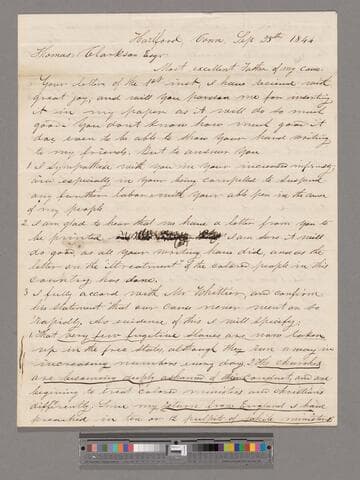 Hartford, Conn Sep 28th 1844
Thomas Clarkson Esqr.
Most excellent Father of my cause
Your letter of the 1st inst, I have received with
great joy, and will you pardon me for inserting
it in my paper as it will do so much
good. You don't know how much good it
does even to be able to show your hand writing
to my friends. But to answer you
1 I sympathise with you in your increased infirmity
and especially in your being compelled to suspend
any further labor with your able pen in the cause
of my people
2 I am glad to hear that we have a letter from you to
be printed I am sure it will
do good, as all your writing have did, and as the
letter on the "ill treatment" of the colored people in this
country has done.
3 I fully accord with Mr. Whittier, and confirm
his statement that our cause never went on so
rapidly. As evidence of this I will specify,
1 That very few fugitive slaves are now taken
up in the free states, although they run away in
increasing numbers every day. 2 The churches
are becoming deeply ashamed of their conduct, and are
beginning to treat colored ministers and christians
differently. Since my return from England I have
preached in ten or 12 pulpits of white ministers